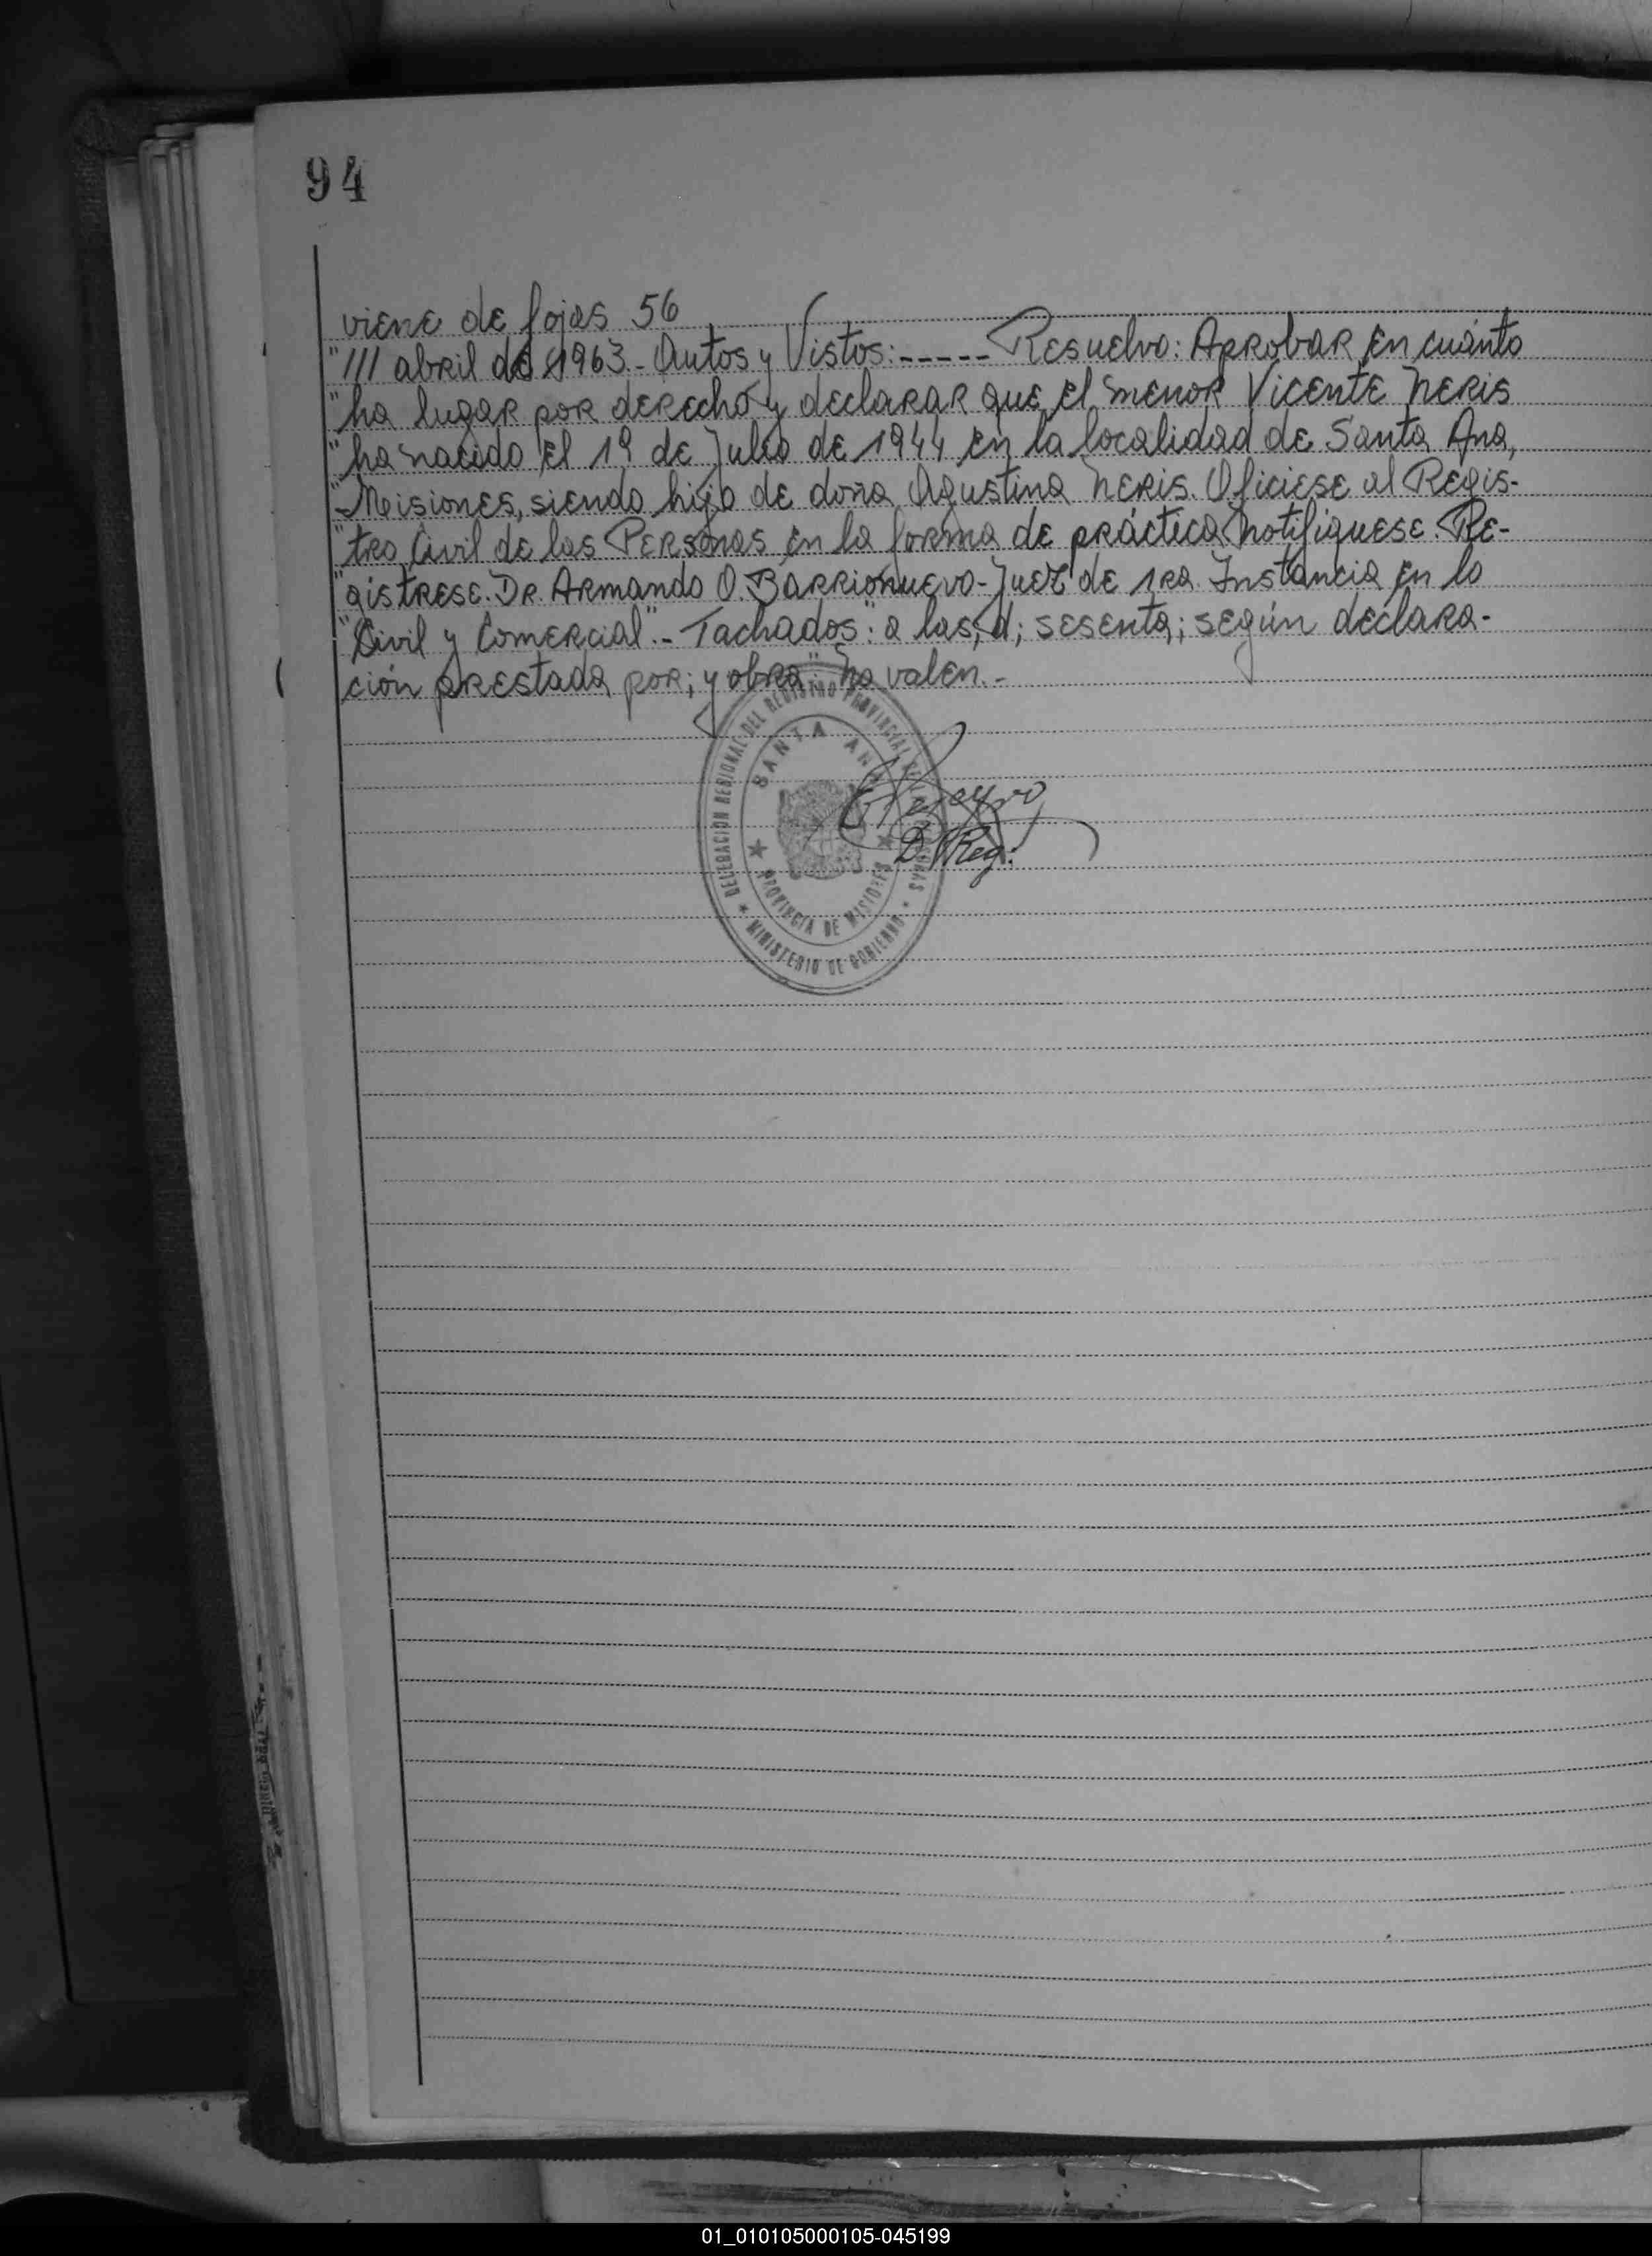 94
viene de fojas 56
"/// abril de 1963.- Autos y Vistos:----- Resuelvo: Aprobar en cuanto
"ha lugar por derecho y declarar que el menor Vicente Neris
"ha nacido el 1º de Julio de 1944 en la localidad de Santa Ana,
"Misiones, siendo hijo de doña Agustina Neris. Oficiese al Regis-
"tro Civil de las Personas en la forma de práctica. Notifiquese. Re-
"gistrese. Dr. Armando O. Barrionuevo - Juez de 1ra. Instancia en lo
"Civil y Comercial".- Tachados: "a las; d; sesenta; según declara-
ción prestada por; y obra" no valen.-
DELEGACION REGIONAL DEL REGISTRO PROVINCIAL DE LAS PERSONAS
SANTA ANA
PROVINCIA DE MISIONES
MINISTERIO DE GOBIERNO
D. Reg.
01_010105000105-045199